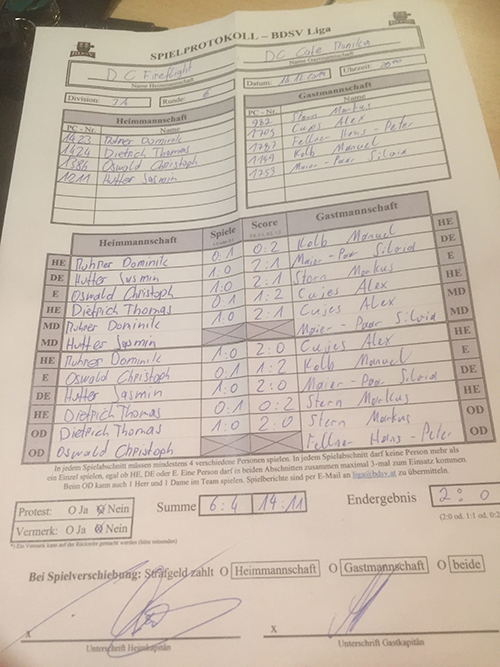 SPIELPROTOKOLL – BDSV Liga
DC Fireflight
DC Cafe Monika
Name Heimmannschaft
Name Gastmannschaft
Division: 2A Runde: 6
Datum: Uhrzeit:
Heimmannschaft
Gastmannschaft
PC - Nr. Name
PC - Nr. Name
1423 Muhrer Dominik
982 Stern Markus
1424 Dietrich Thomas
1705 Cujes Alex
1384 Oswald Christoph
1797 Fellner Hans - Peter
1011 Hutter Jasmin
1149 Kolb Manuel
1753 Maier - Paar Silvia
Heimmannschaft Spiele Score Gastmannschaft
HE Muhrer Dominik 0:1 0:2 Kolb Manuel HE
DE Hutter Jasmin 1:0 2:1 Maier - Paar Silvia DE
E Oswald Christoph 1:0 2:1 Stern Markus E
HE Dietrich Thomas 0:1 1:2 Cujes Alex HE
MD Muhrer Dominik 1:0 2:1 Cujes Alex MD
MD Hutter Jasmin Maier - Paar Silvia MD
HE Muhrer Dominik 1:0 2:0 Cujes Alex HE
E Oswald Christoph 0:1 1:2 Kolb Manuel E
DE Hutter Jasmin 1:0 2:0 Maier - Paar Silvia DE
HE Dietrich Thomas 0:1 0:2 Stern Markus HE
OD Dietrich Thomas 1:0 2:0 Stern Markus OD
OD Oswald Christoph Fellner Hans - Peter OD
In jedem Spielabschnitt müssen mindestens 4 verschiedene Personen spielen. In jedem Spielabschnitt darf keine Person mehr als
ein Einzel spielen, egal ob HE, DE oder E. Eine Person darf in beiden Abschnitten zusammen maximal 3-mal zum Einsatz kommen.
Beim OD kann auch 1 Herr und 1 Dame im Team spielen. Spielberichte sind per E-Mail an liga@bdsv.at zu übermitteln.
Protest: O Ja Nein Summe 6:4 14:11 Endergebnis 2:0
Vermerk: O Ja Nein (2:0 od. 1:1 od. 0:2)
*) Ein Vermerk kann auf der Rückseite gemacht werden (bitte umwenden)
Bei Spielverschiebung: Strafgeld zahlt O Heimmannschaft O Gastmannschaft O beide
X
X
Unterschrift Heimkapitän
Unterschrift Gastkapitän